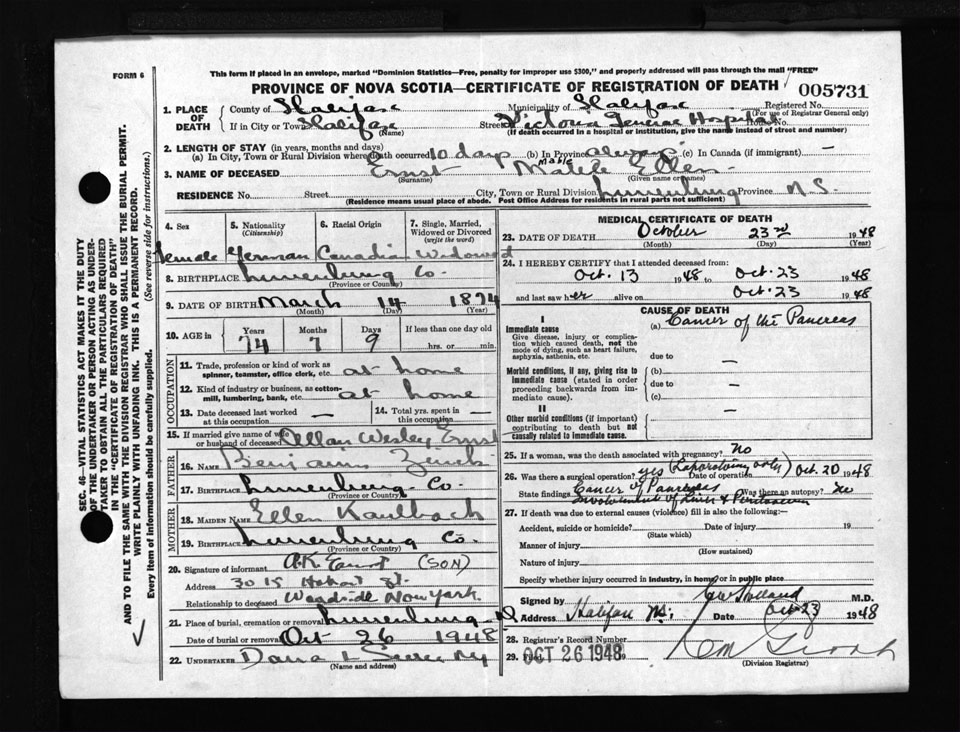 FORM 6
This form if placed in an envelope, marked "Dominion Statistics—Free, penalty for improper use $300," and properly addressed will pass through the mail "FREE"
PROVINCE OF NOVA SCOTIA—CERTIFICATE OF REGISTRATION OF DEATH 005731
1. PLACE OF DEATH County of Halifax Municipality of Halifax Registered No.
(For use of Registrar General only)
If in City or Town Halifax Street Victoria General Hospital House No.
(Name) (If death occurred in a hospital or institution, give the name instead of street and number)
2. LENGTH OF STAY (in years, months and days)
(a) In City, Town or Rural Division where death occurred 10 days (b) In Province always (c) In Canada (if immigrant) —
3. NAME OF DECEASED Ernst Mable Ellen
(Surname) (Given name or names)
RESIDENCE No. Street City, Town or Rural Division Lunenburg Province N.S.
(Residence means usual place of abode. Post Office Address for residents in rural parts not sufficient)
4. Sex 5. Nationality (Citizenship) 6. Racial Origin 7. Single, Married, Widowed or Divorced (write the word)
Female German Canadian Widowed
8. BIRTHPLACE Lunenburg Co.
(Province or County)
9. DATE OF BIRTH March 14 1874
(Month) (Day) (Year)
10. AGE in Years Months Days If less than one day old
74 7 9 hrs. or min.
OCCUPATION
11. Trade, profession or kind of work as spinner, teamster, office clerk, etc. at home
12. Kind of industry or business, as cotton-mill, lumbering, bank, etc. at home
13. Date deceased last worked at this occupation — 14. Total yrs. spent in this occupation —
15. If married give name of wife or husband of deceased Allan Wesley Ernst
FATHER
16. Name Benjamin Zinck
17. Birthplace Lunenburg Co.
MOTHER
18. Maiden Name Ellen Kaulbach
19. Birthplace Lunenburg Co.
(Province or County)
20. Signature of informant A.K. Ernst (SON)
Address 30 15 Hobart St.
Relationship to deceased Woodside New York
21. Place of burial, cremation or removal Lunenburg
Date of burial or removal Oct 26 1948
22. UNDERTAKER Dana L
(Name and address)
MEDICAL CERTIFICATE OF DEATH
23. DATE OF DEATH October 23rd 1948
(Month) (Day) (Year)
24. I HEREBY CERTIFY that I attended deceased from:
Oct. 13 1948 to Oct. 23 1948
and last saw her alive on Oct. 23 1948
CAUSE OF DEATH
I
Immediate cause (a) Cancer of the Pancreas
Give disease, injury or complication which caused death, not the mode of dying, such as heart failure, asphyxia, asthenia, etc.
due to —
Morbid conditions, if any, giving rise to immediate cause (stated in order proceeding backwards from immediate cause).
(b)
due to —
(c)
II
Other morbid conditions (if important) contributing to death but not causally related to immediate cause. —
25. If a woman, was the death associated with pregnancy? No
26. Was there a surgical operation? yes (Laparotomy only) Date of operation Oct. 20 1948
State findings Cancer of Pancreas Was there an autopsy? No
Involvement of Liver & Peritoneum
27. If death was due to external causes (violence) fill in also the following: —
Accident, suicide or homicide? Date of injury 19
(State which)
Manner of injury
(How sustained)
Nature of injury
Specify whether injury occurred in industry, in home or in public place
Signed by M.D.
Address Halifax N.S. Date Oct 23 1948
28. Registrar's Record Number
29. Filed OCT 26 1948
(Division Registrar)
SEC. 46—VITAL STATISTICS ACT MAKES IT THE DUTY
OF THE UNDERTAKER OR PERSON ACTING AS UNDER-
TAKER TO OBTAIN ALL THE PARTICULARS REQUIRED
IN THE "CERTIFICATE OF REGISTRATION OF DEATH"
AND TO FILE THE SAME WITH THE DIVISION REGISTRAR WHO SHALL ISSUE THE BURIAL PERMIT.
WRITE PLAINLY WITH UNFADING INK. THIS IS A PERMANENT RECORD.
Every item of information should be carefully supplied. (See reverse side for instructions.)